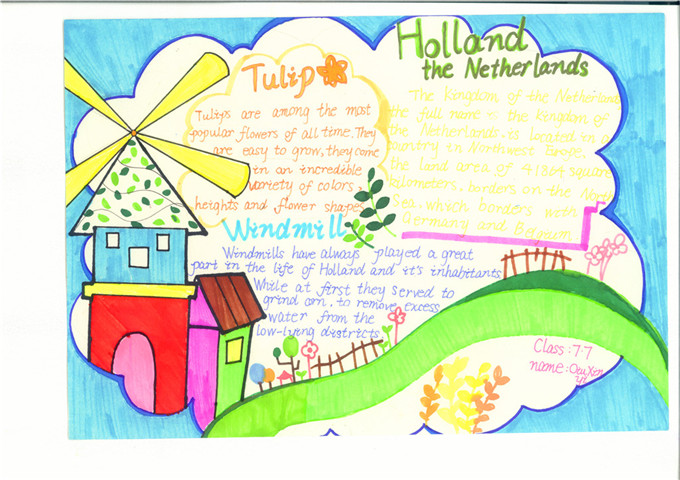 Holland
the Netherlands
Tulip
Tulips are among the most
popular flowers of all time. They
are easy to grow, they come
in an incredible
variety of colors,
heights and flower shapes
The Kingdom of the Netherland
the full name is the kingdom of
the Netherlands. is located in a
country in Northwest Erope,
the land area of 41864 square
kilometers, borders on the
Sea, which borders with
Germany and Belgium
Windmill
Windmills have always played a great
part in the life of Holland and it's inhabitants
While at first they served to
grind corn, to remove excess
water from the
low-lying districts
Class: 7.7
name: